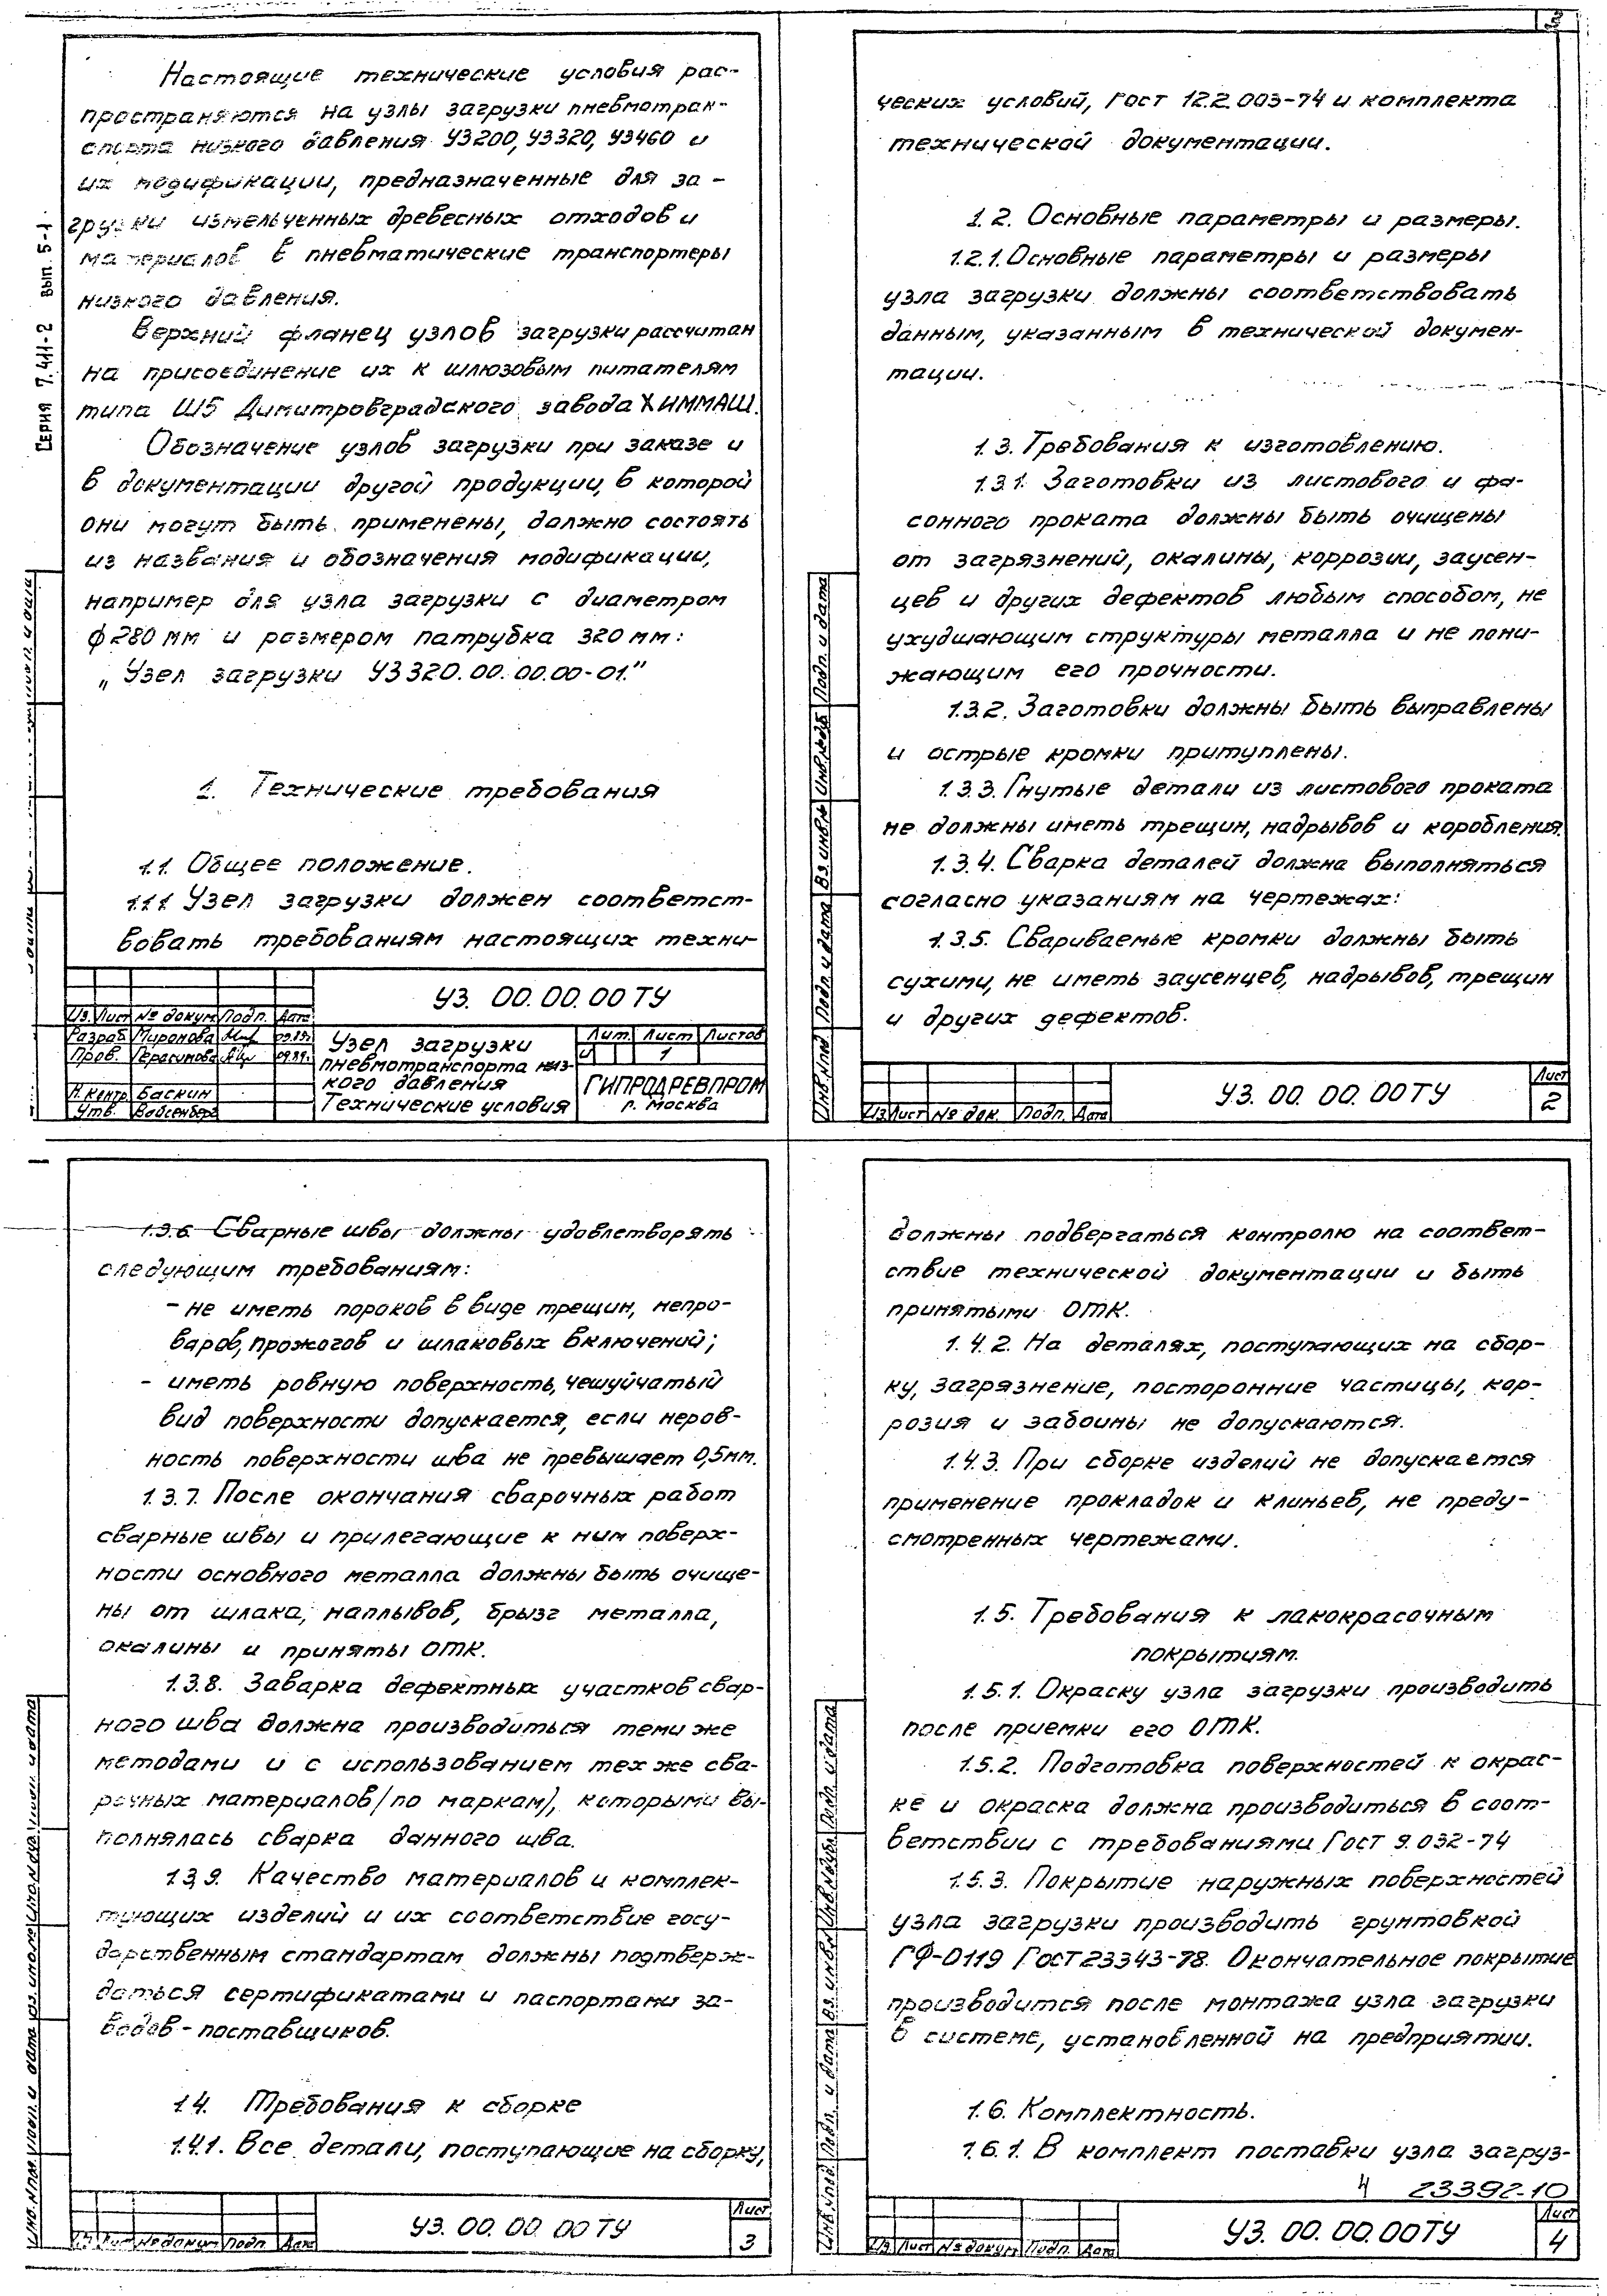 3
Настоящие технические условия рас-
пространяются на узлы загрузки пневмотран-
спорта низкого давления УЗ200, УЗ320, УЗ460 и
их модификации, предназначенные для за-
грузки измельченных древесных отходов и
материалов в пневматические транспортеры
низкого давления.
Верхний фланец узлов загрузки рассчитан
на присоединение их к шлюзовым питателям
типа Ш5 Димитровградского завода ХИММАШ.
Обозначение узлов загрузки при заказе и
в документации другой продукции, в которой
они могут быть применены, должно состоять
из названия и обозначения модификации,
например для узла загрузки с диаметром
ф 280 мм и размером патрубка 320 мм:
„Узел загрузки УЗ320.00.00.00-01."
1. Технические требования
1.1. Общее положение.
1.1.1 Узел загрузки должен соответст-
вовать требованиям настоящих техни-
Серия 7.411-2 вып. 5-1
УЗ. 00.00.00 ТУ
Из. Лист № докум Подп. Дата
Разраб. Миронова 09.89г.
Пров. Герасимова 09.89г.
Н. контр. Баскин
Утв. Вайсенберг
Узел загрузки
пневмотранспорта низ-
кого давления
Технические условия
Лит. Лист Листов
И 1
ГИПРОДРЕВПРОМ
г. Москва
ческих условий, ГОСТ 12.2.003-74 и комплекта
технической документации.
1.2. Основные параметры и размеры.
1.2.1. Основные параметры и размеры
узла загрузки должны соответствовать
данным, указанным в технической докумен-
тации.
1.3. Требования к изготовлению.
1.3.1. Заготовки из листового и фа-
сонного проката должны быть очищены
от загрязнений, окалины, коррозии, заусен-
цев и других дефектов любым способом, не
ухудшающим структуры металла и не пони-
жающим его прочности.
1.3.2. Заготовки должны быть выправлены
и острые кромки притуплены.
1.3.3. Гнутые детали из листового проката
не должны иметь трещин, надрывов и коробления.
1.3.4. Сварка деталей должна выполняться
согласно указаниям на чертежах:
1.3.5. Свариваемые кромки должны быть
сухими, не иметь заусенцев, надрывов, трещин
и других дефектов.
Инв.№под Подп. и дата Вз. инв.№ Инв.№дуб Подп. и дата
Из Лист № док. Подп. Дата
УЗ. 00. 00. 00 ТУ
Лист
2
1.3.6. Сварные швы должны удовлетворять
следующим требованиям:
- не иметь пороков в виде трещин, непро-
варов, прожогов и шлаковых включений;
- иметь ровную поверхность, чешуйчатый
вид поверхности допускается, если неров-
ность поверхности шва не превышает 0,5мм.
1.3.7. После окончания сварочных работ
сварные швы и прилегающие к ним поверх-
ности основного металла должны быть очище-
ны от шлака, наплывов, брызг металла,
окалины и приняты ОТК.
1.3.8. Заварка дефектных участков свар-
ного шва должна производиться теми же
методами и с использованием тех же сва-
рочных материалов /по маркам/, которыми вы-
полнялась сварка данного шва.
1.3.9. Качество материалов и комплек-
тующих изделий и их соответствие госу-
дарственным стандартам должны подтверж-
даться сертификатами и паспортами за-
водов-поставщиков.
1.4. Требования к сборке
1.4.1. Все детали, поступающие на сборку,
Из Лист № докум Подп. Дата
УЗ. 00. 00. 00 ТУ
Лист
3
должны подвергаться контролю на соответ-
ствие технической документации и быть
принятыми ОТК.
1.4.2. На деталях, поступающих на сбор-
ку, загрязнение, посторонние частицы, кор-
розия и забоины не допускаются.
1.4.3. При сборке изделий не допускается
применение прокладок и клиньев, не преду-
смотренных чертежами.
1.5. Требования к лакокрасочным
покрытиям.
1.5.1. Окраску узла загрузки производить
после приемки его ОТК.
1.5.2. Подготовка поверхностей к окрас-
ке и окраска должна производиться в соот-
ветствии с требованиями ГОСТ 9.032-74
1.5.3. Покрытие наружных поверхностей
узла загрузки производить грунтовкой
ГФ-0119 ГОСТ 23343-78. Окончательное покрытие
производится после монтажа узла загрузки
в системе, установленной на предприятии.
1.6. Комплектность.
1.6.1. В комплект поставки узла загруз-
4 23392-10
Инв.№под. Подп. и дата Вз. инв.№ Инв.№дубл. Подп. и дата
Из Лист № докум Подп. Дата
УЗ. 00. 00. 00 ТУ
Лист
4